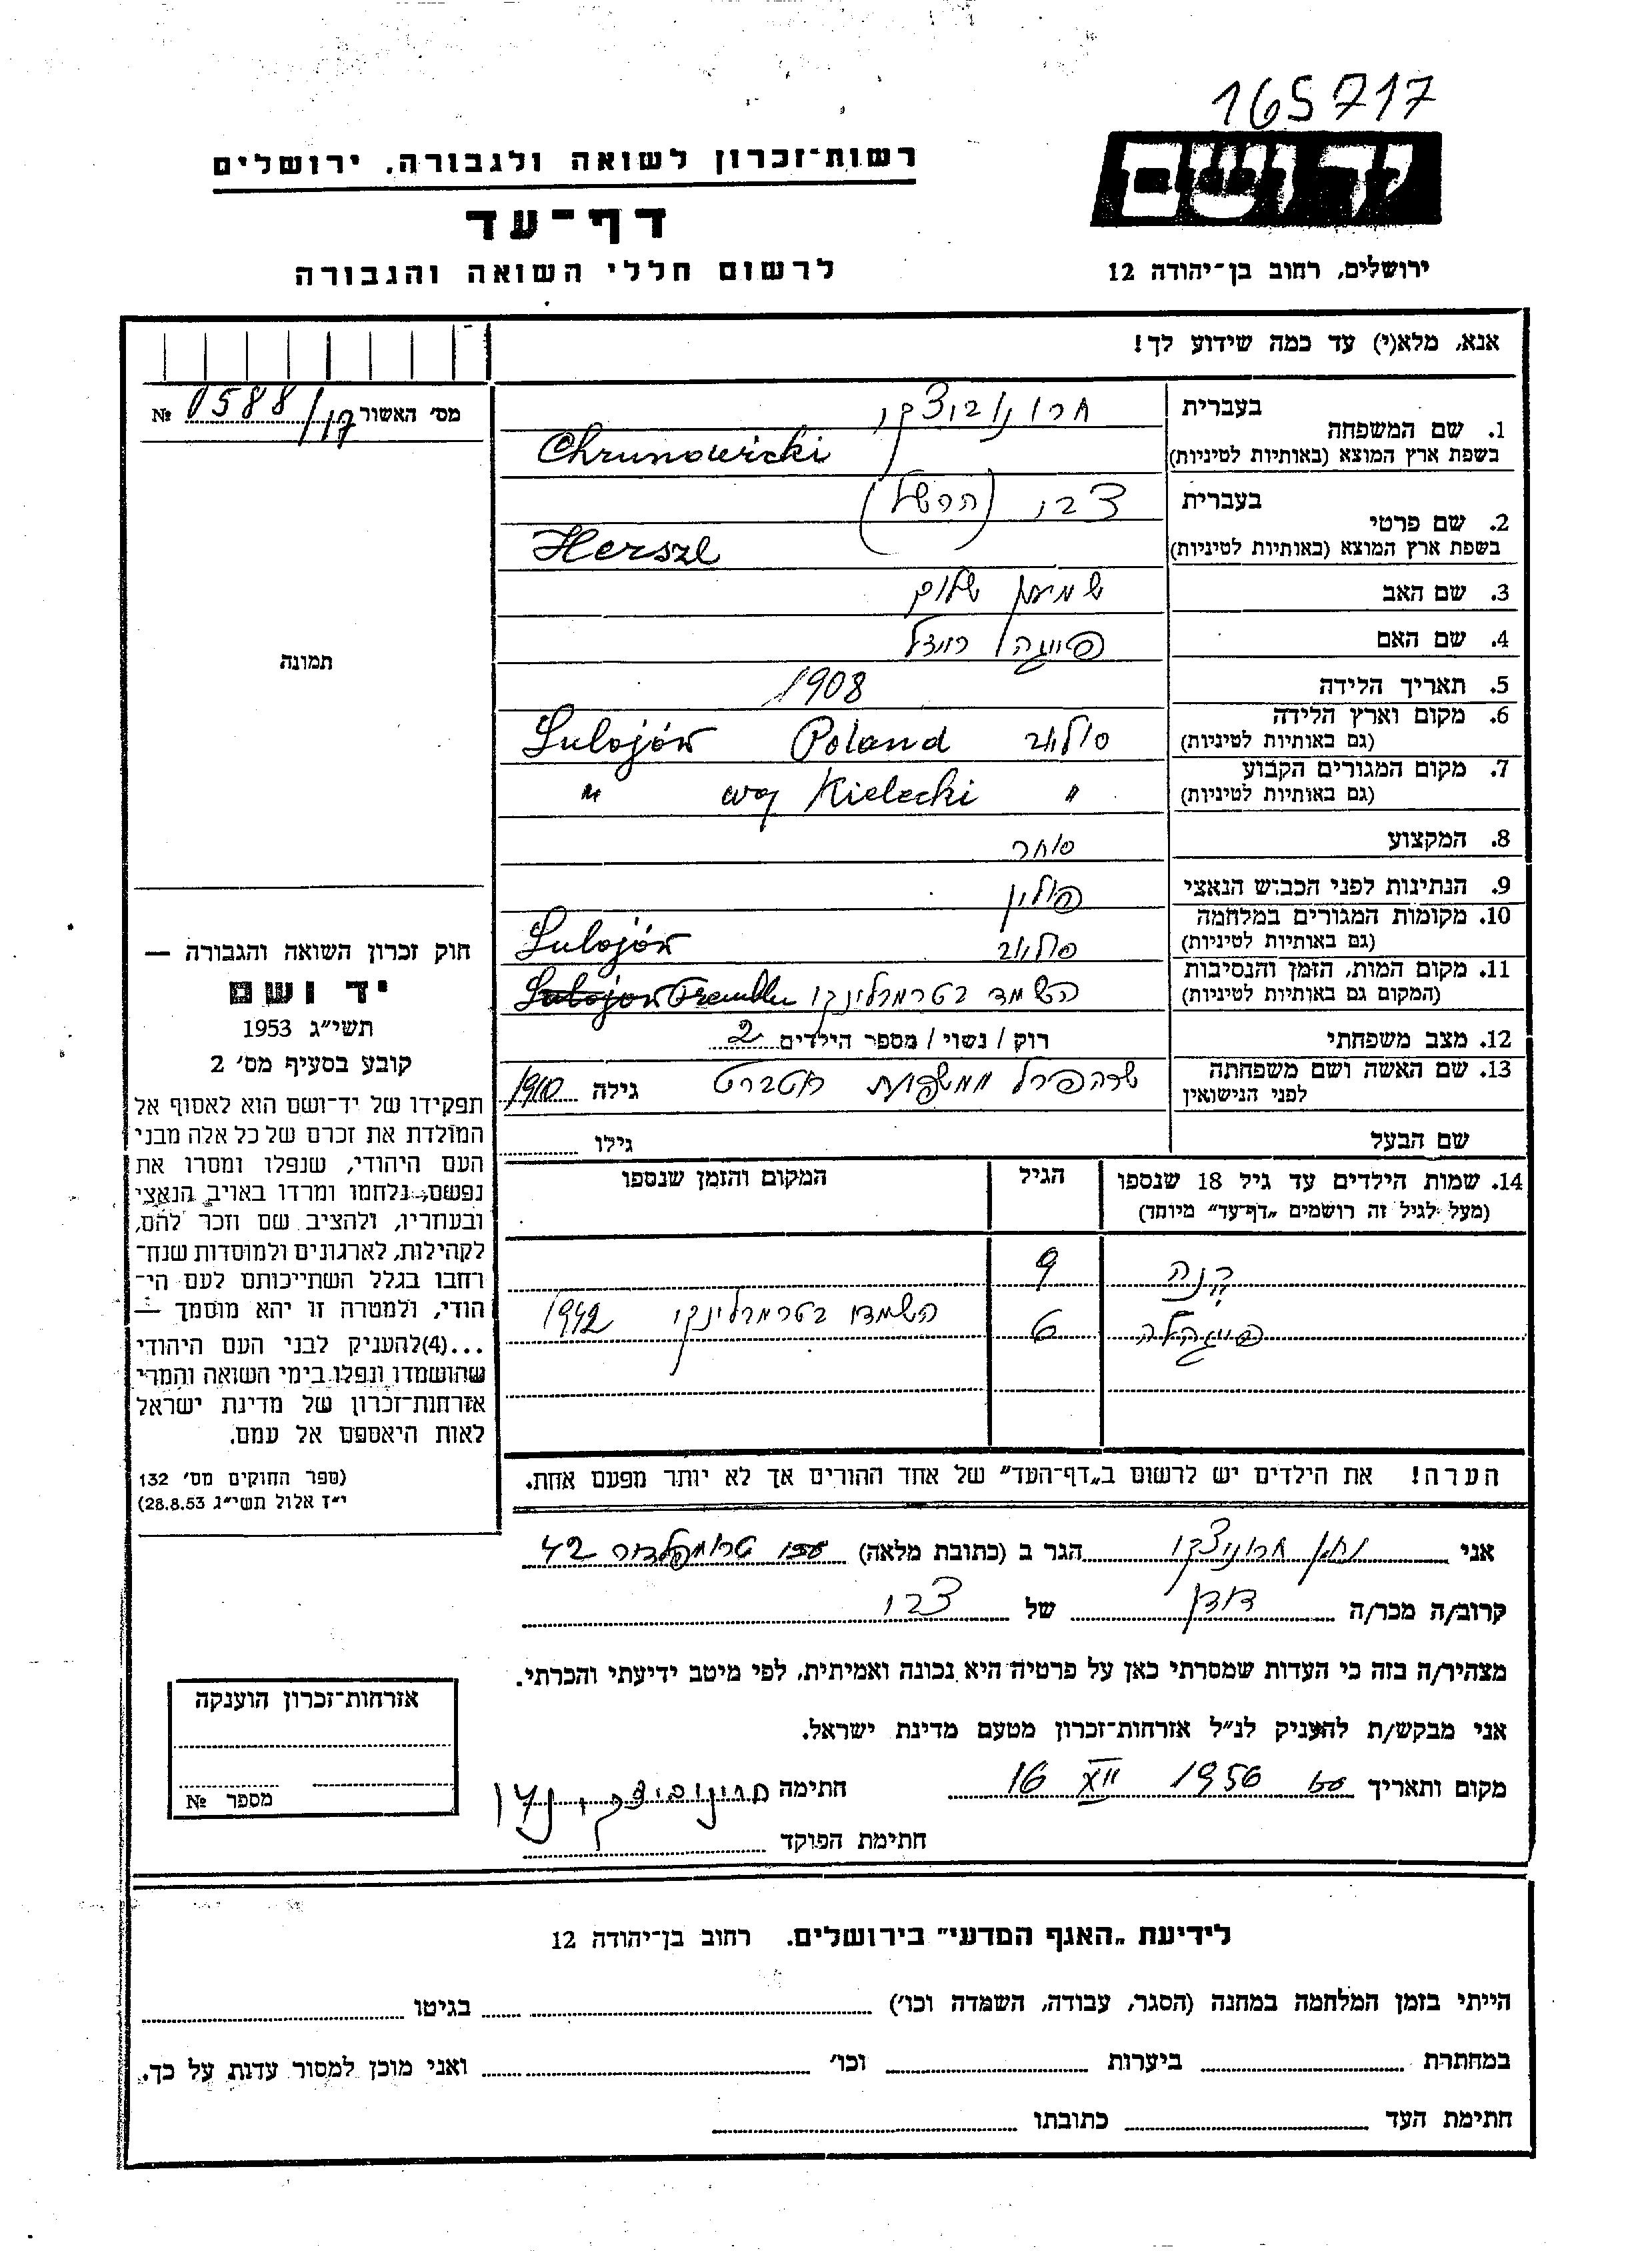 165717
יד ושם
רשות־זכרון לשואה ולגבורה, ירושלים
דף־עד
לרשום חללי השואה והגבורה
ירושלים, רחוב בן־יהודה 12
אנא, מלא(י) עד כמה שידוע לך!
מס׳ האשור 0588/17 №
תמונה
1. שם המשפחה בעברית חרונוביצקי
בשפת ארץ המוצא (באותיות לטיניות) Chrunowicki
2. שם פרטי בעברית צבי (הרשל)
בשפת ארץ המוצא (באותיות לטיניות) Herszl
3. שם האב שמעון שלום
4. שם האם פייגה
5. תאריך הלידה 1908
6. מקום וארץ הלידה
(גם באותיות לטיניות) Poland Sulojów
7. מקום המגורים הקבוע
(גם באותיות לטיניות) " woj Kielecki "
8. המקצוע סוחר
9. הנתינות לפני הכבוש הנאצי פולין
10. מקומות המגורים במלחמה
(גם באותיות לטיניות) Sulojów
11. מקום המות, הזמן והנסיבות
(המקום גם באותיות לטיניות) הושמד בטרמבלינקי
12. מצב משפחתי רוק / נשוי / מספר הילדים 2
13. שם האשה ושם משפחתה
לפני הנישואין שרה פרל ממשפחת גילה 1910
שם הבעל גילו
14. שמות הילדים עד גיל 18 שנספו הגיל המקום והזמן שנספו
(מעל לגיל זה רושמים „דף־עד” מיוחד)
9
פייגהלה 6 הושמדו בטרמבלינקי 1942
הערה! את הילדים יש לרשום ב„דף־העד” של אחד ההורים אך לא יותר מפעם אחת.
חוק זכרון השואה והגבורה —
יד ושם
תשי״ג 1953
קובע בסעיף מס׳ 2
תפקידו של יד־ושם הוא לאסוף אל
המולדת את זכרם של כל אלה מבני
העם היהודי, שנפלו ומסרו את
נפשם, נלחמו ומרדו באויב הנאצי
ובעוזריו, ולהציב שם וזכר להם,
לקהילות, לארגונים ולמוסדות שנח־
רחבו בגלל השתייכותם לעם הי־
הודי, ולמטרה זו יהא מוסמך —
...(4)להעניק לבני העם היהודי
שהושמדו ונפלו בימי השואה והמרי
אזרחות־זכרון של מדינת ישראל
לאות היאספם אל עמם.
(ספר החוקים מס׳ 132
י״ז אלול תשי״ג 28.8.53)
אני נתן חרונוביצקי הגר ב (כתובת מלאה) טרומפלדור 42
קרוב/ה מכר/ה דודן של צבי
מצהיר/ה בזה כי העדות שמסרתי כאן על פרטיה היא נכונה ואמיתית, לפי מיטב ידיעתי והכרתי.
אני מבקש/ת להעניק לנ״ל אזרחות־זכרון מטעם מדינת ישראל.
מקום ותאריך 16 XII 1956 חתימה חרונוביצקי נתן
חתימת הפוקד
אזרחות־זכרון הוענקה
מספר №
לידיעת „האגף המדעי” בירושלים. רחוב בן־יהודה 12
הייתי בזמן המלחמה במחנה (הסגר, עבודה, השמדה וכו׳) בגיטו
במחתרת ביערות וכו׳ ואני מוכן למסור עדות על כך.
חתימת העד כתובתו